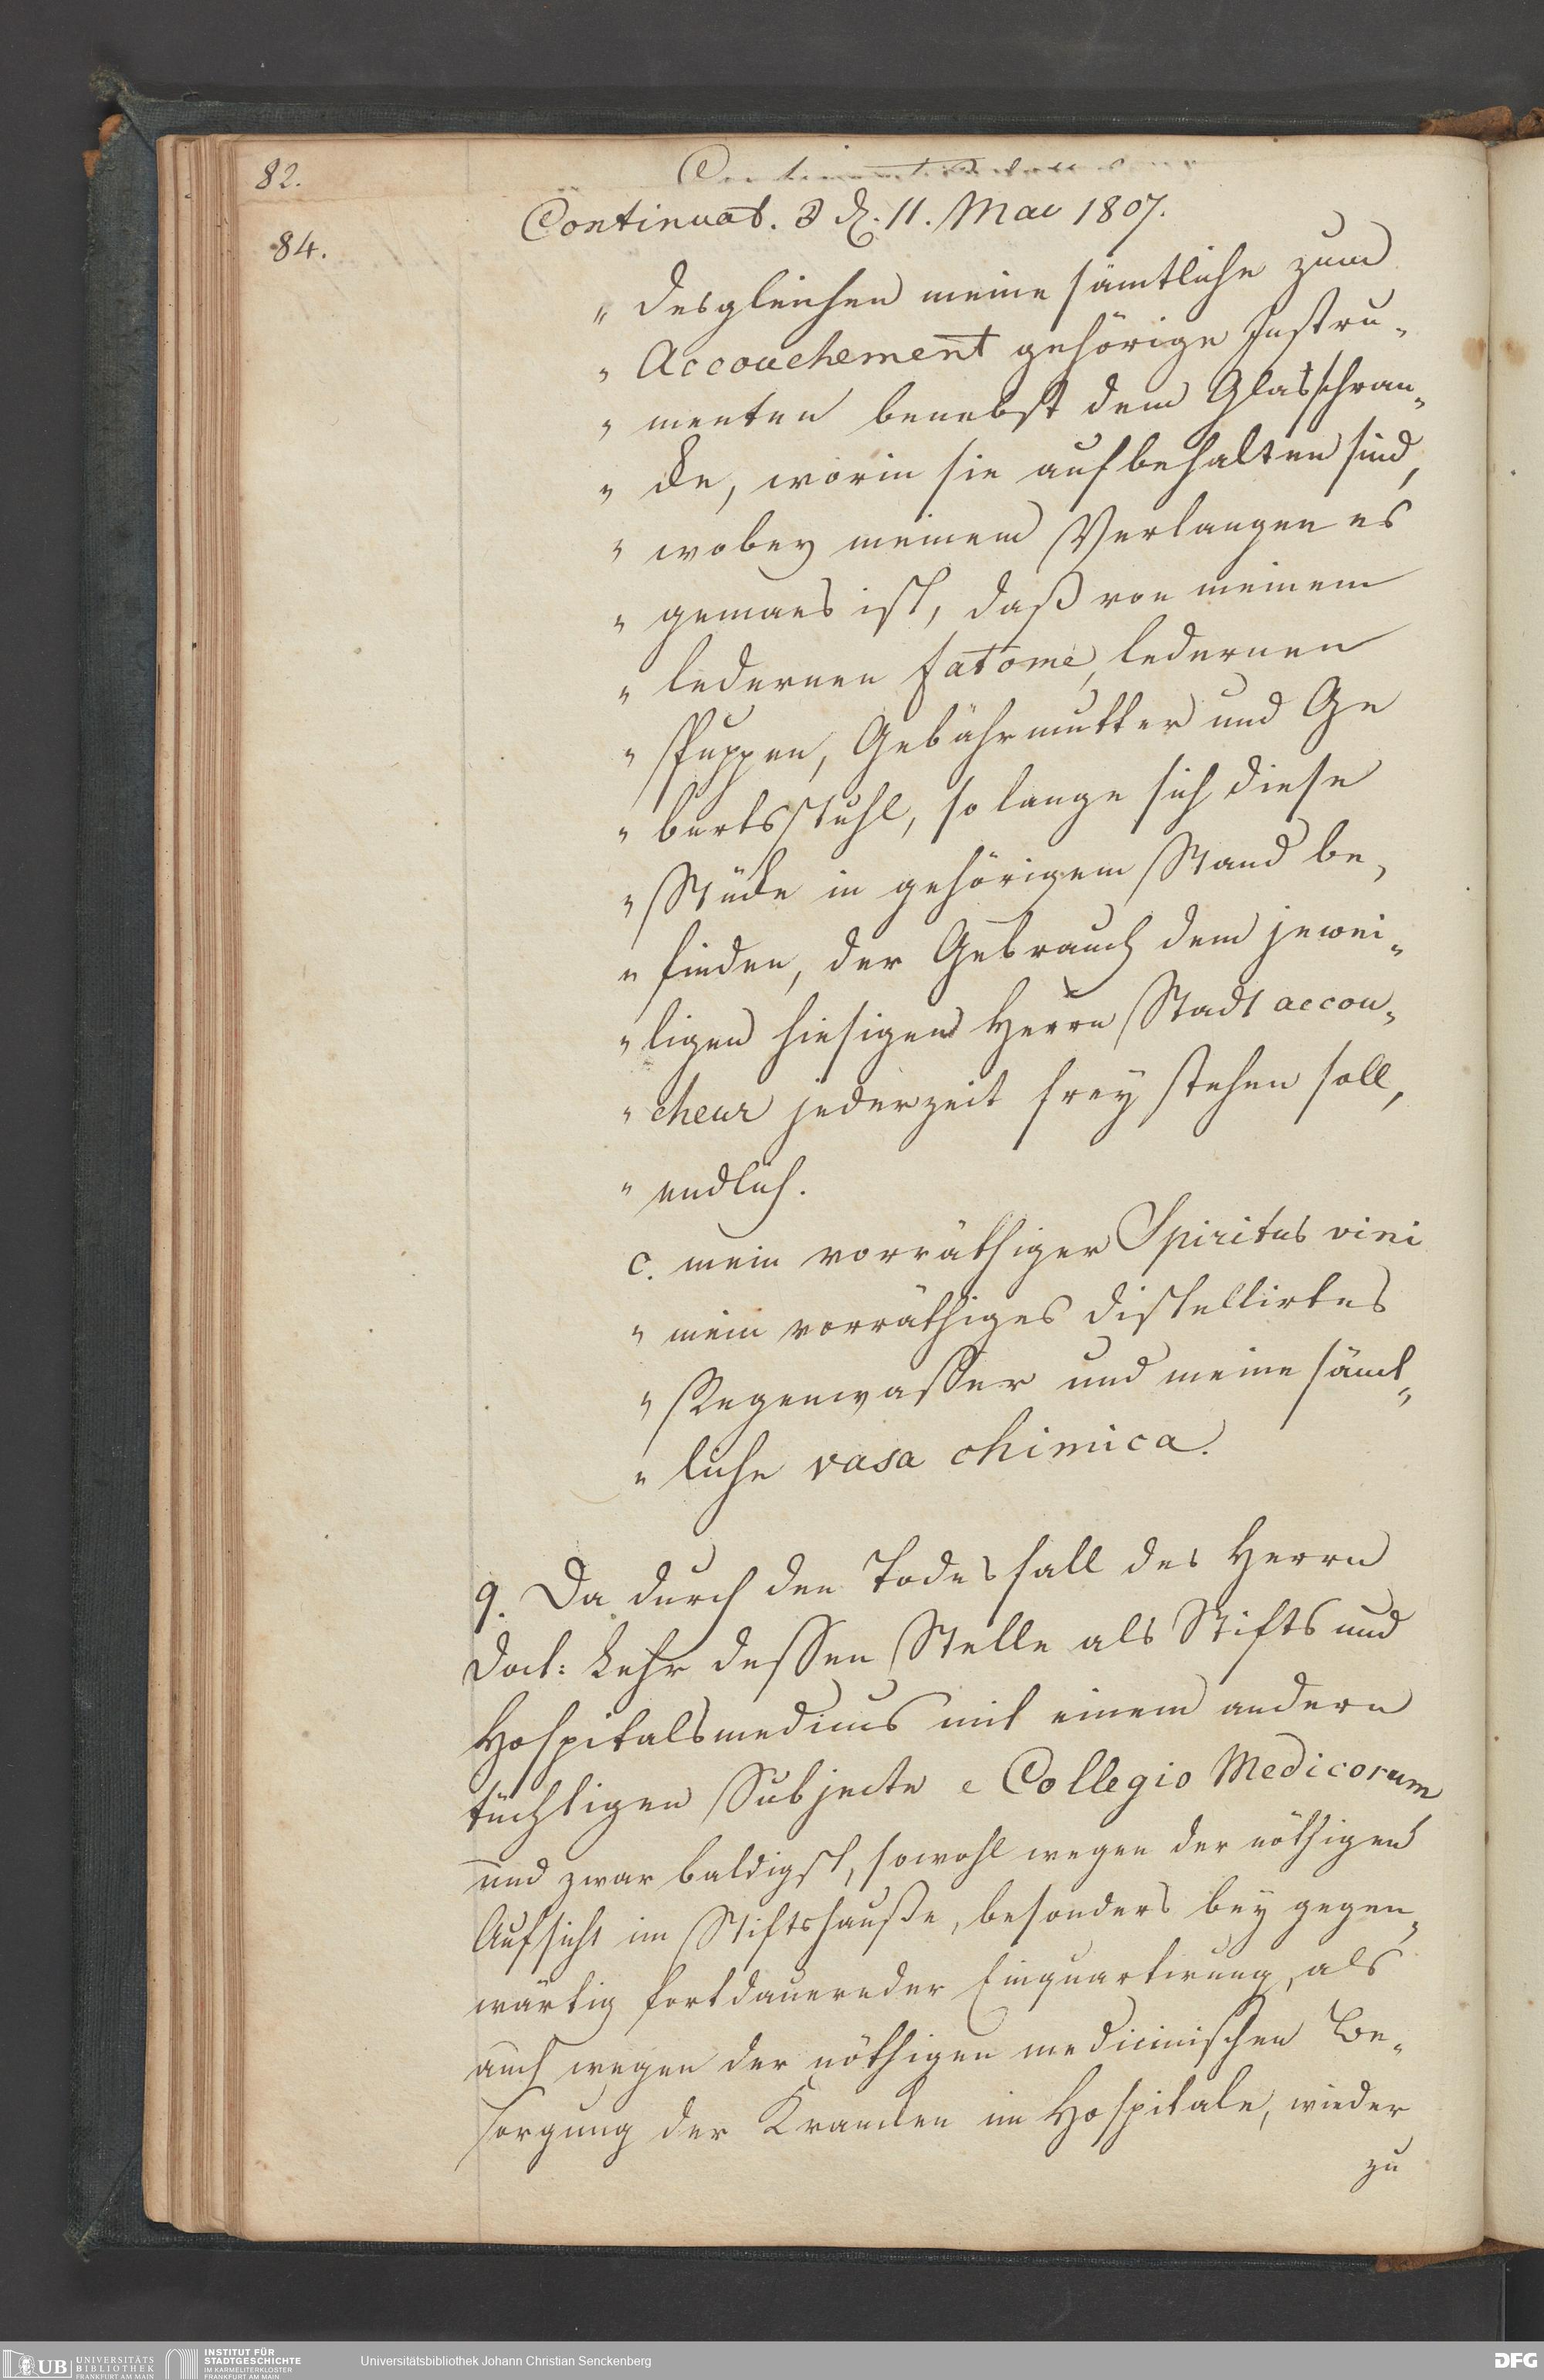 82.
Continuat. d. 11. Mai 1807.
84.
„ desgleichen meine sämtliche zum
„ Accouchement gehörige Instru-
„ menten benebst dem Glasschran-
„ cke, worin sie aufbehalten sind,
„ wobey meinem Verlangen es
„ gemaes ist, daß von meinem
„ ledernen fatome, ledernen
„ Puppen, Gebährmutter und Ge
„ burtsstuhl, so lange sich diese
„ Stücke in gehörigem Stand be-
„ finden, der Gebrauch dem jewei-
„ ligen hiesigen Herrn Stadt accou-
„ cheur jederzeit frey stehen soll,
„ endlich.
c. mein vorräthiger Spiritus vini
„ mein vorräthiges distellirtes
„ Regenwasser und meine sämt-
„ liche vasa chimica.
9. Da durch den Todesfall des Herrn
Doct: Lehr dessen Stelle als Stifts und
Hospitalsmedicus mit einem andern
tüchtigen Subjecte e Collegio Medicorum
und zwar baldigst, sowohl wegen der nöthigen
Aufsicht im Stiftshauße, besonders bey gegen-
wärtig fortdauernder Einquartirung, als
auch wegen der nöthigen medicinischen Be-
sorgung der Krancken im Hospitale, wieder
zu
UB UNIVERSITÄTS
BIBLIOTHEK
FRANKFURT AM MAIN
INSTITUT FÜR
STADTGESCHICHTE
IM KARMELITERKLOSTER
FRANKFURT AM MAIN
Universitätsbibliothek Johann Christian Senckenberg
DFG